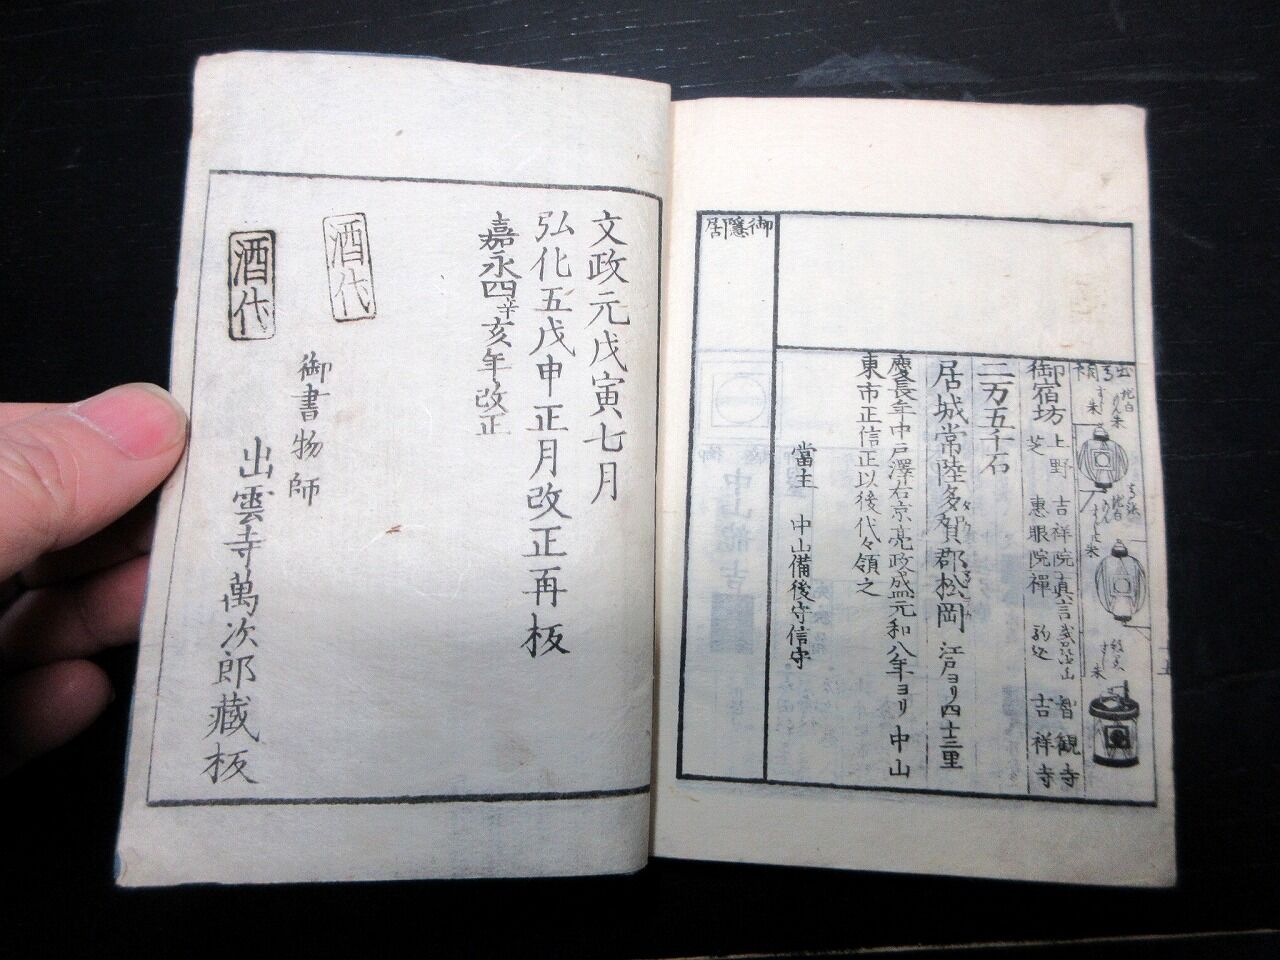 御宿坊
上野 吉祥院 真言 智観寺
芝 惠眼院 禅 吉祥寺
二万五千石
居城常陸多賀郡松岡 江戸ヨリ四十三里
慶長年中戸澤右京亮政盛元和八年ヨリ中山
東市正信正以後代々領之
當主 中山備後守信守
御隱居
文政元戊寅七月
弘化五戊申正月改正再板
嘉永四辛亥年改正
酒代
御書物師
出雲寺萬次郎藏板
酒代